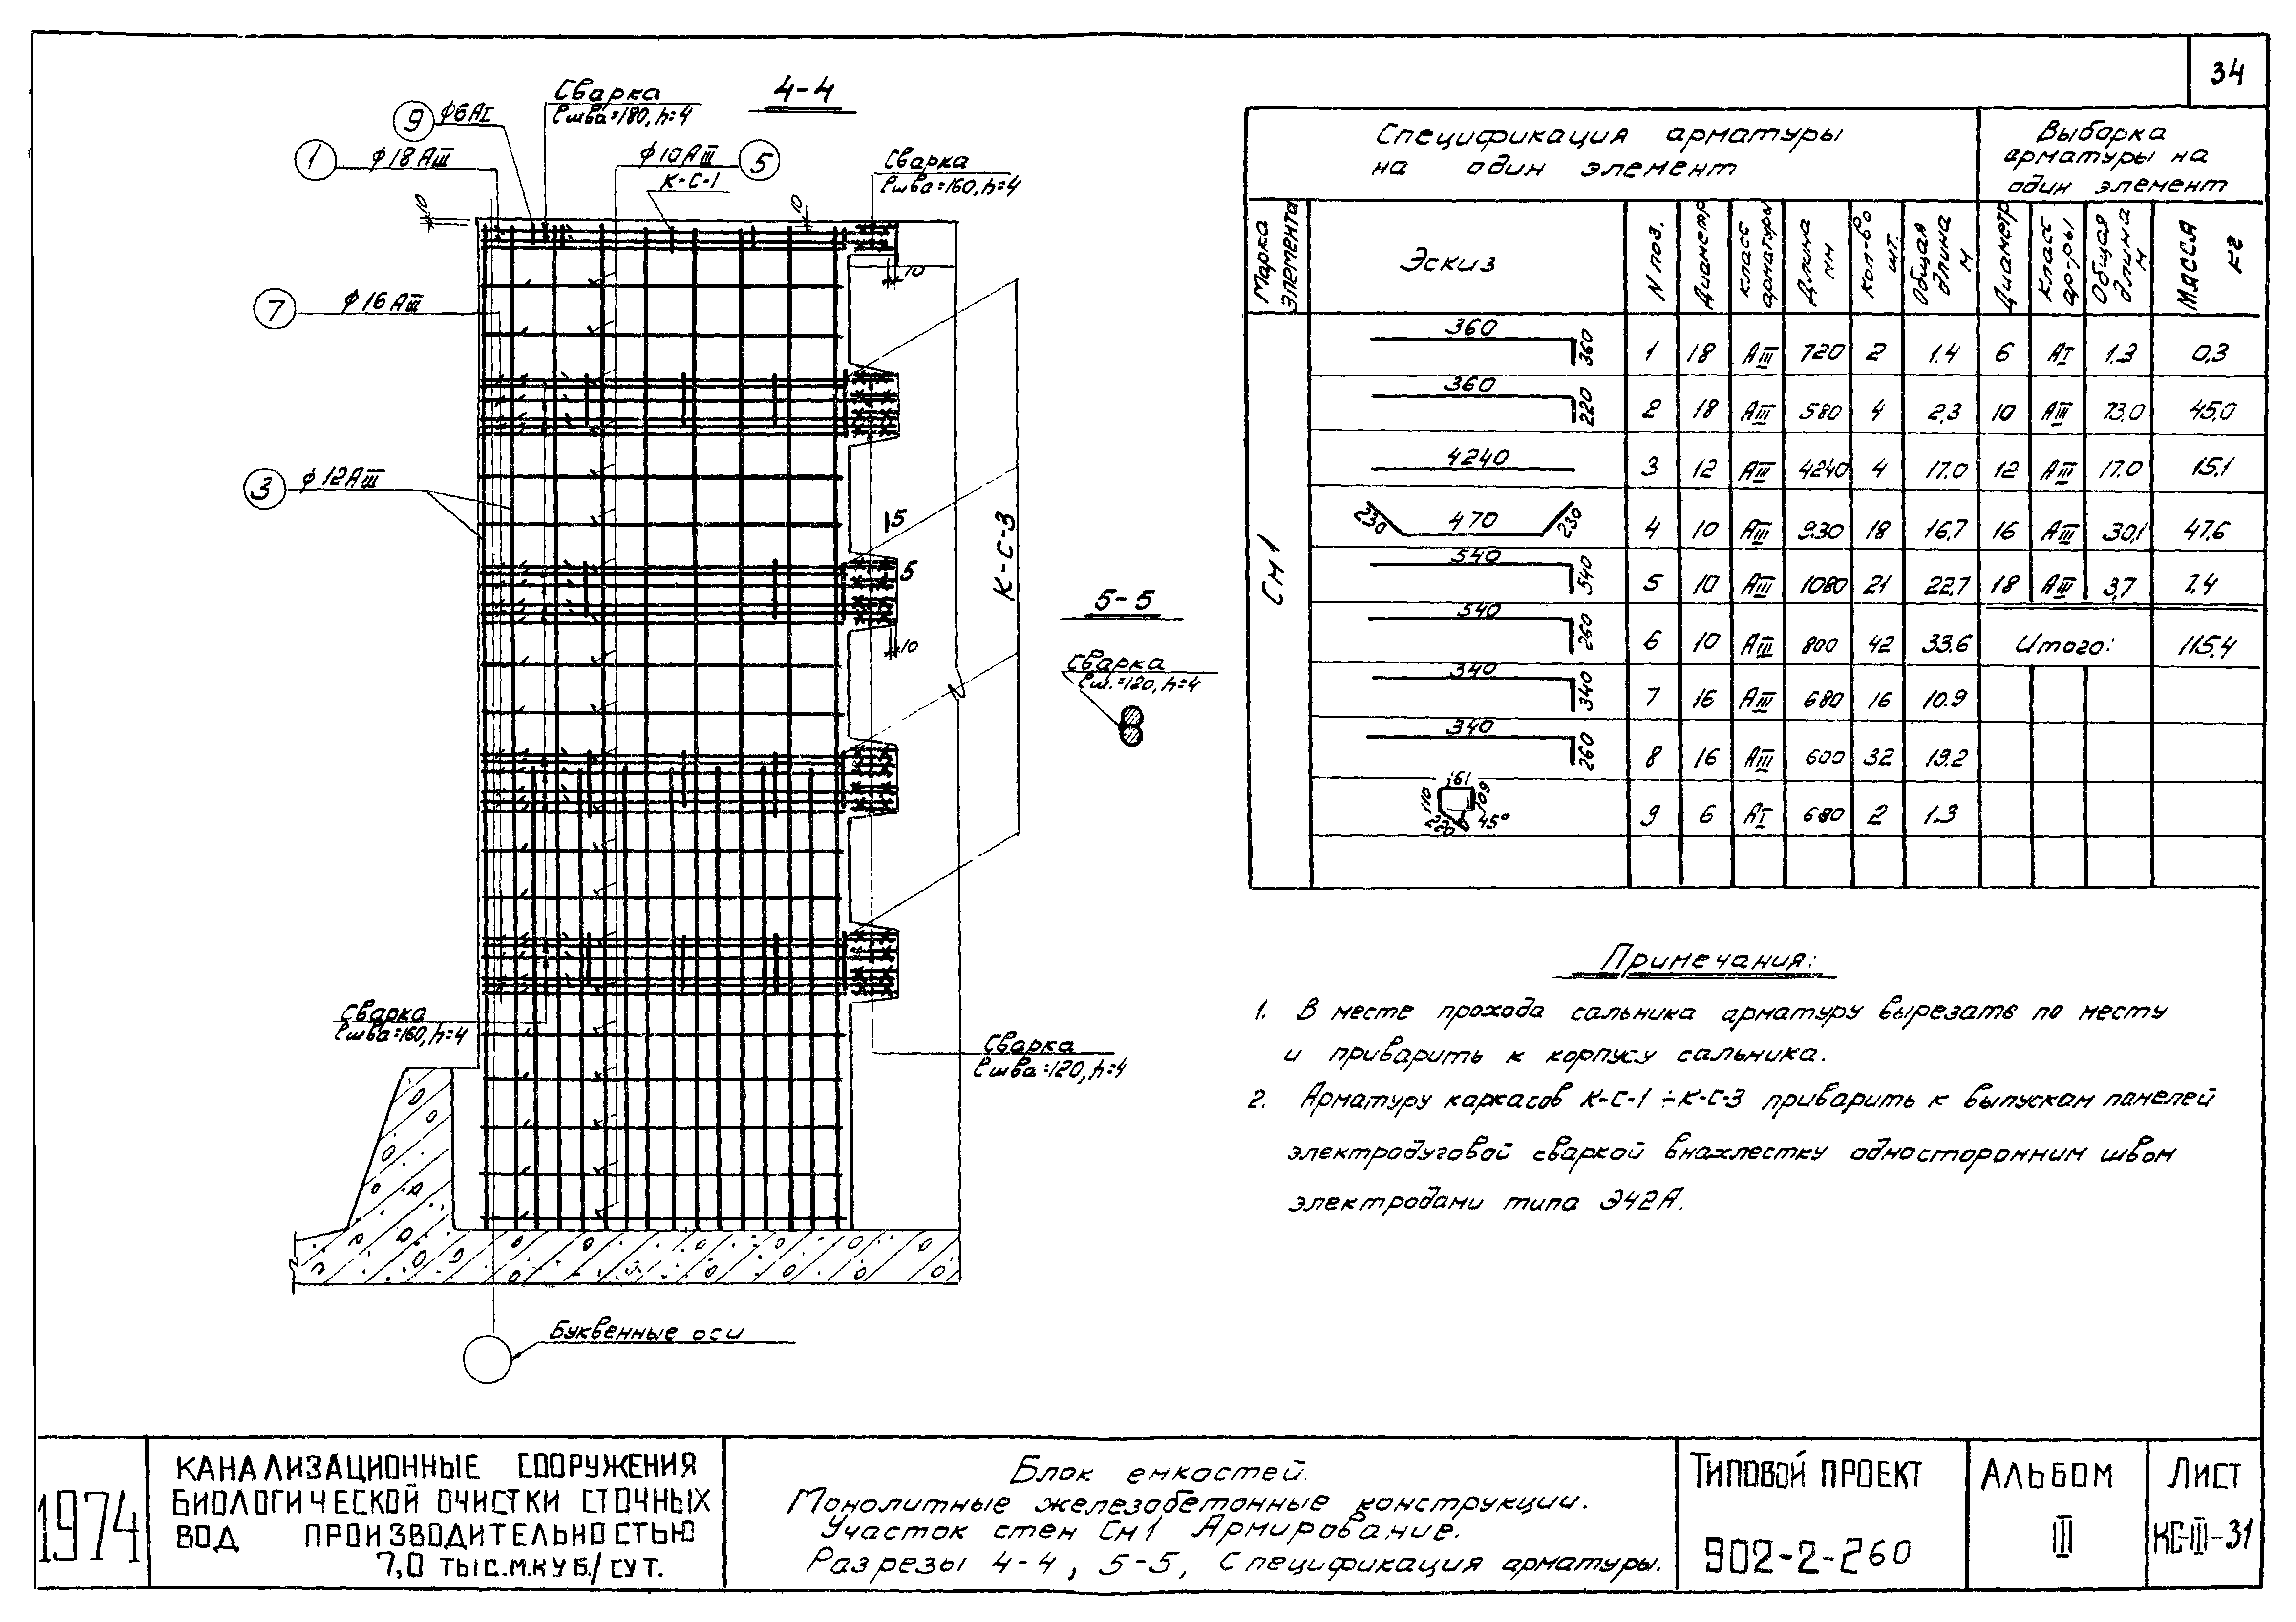 34
4-4
Сварка
ℓшва=180, h=4
9 ф6АI
1 ф18АIII
ф10АIII 5
К-С-1
Сварка
ℓшва=160, h=4
10
10
10
7 ф16АIII
3 ф12АIII
5
5
10
К-С-3
5-5
Сварка
ℓш.=120, h=4
Сварка
ℓшва=160, h=4
Сварка
ℓшва=120, h=4
Буквенные оси
Спецификация арматуры
на один элемент
Выборка
арматуры на
один элемент
Марка элемента
Эскиз
N поз.
Диаметр
класс арматуры
Длина мм
Кол-во шт.
Общая длина м
Диаметр
Класс ар-ры
Общая длина м
Масса кг
См1
360 360 1 18 АIII 720 2 1.4 6 АI 1.3 0,3
360 220 2 18 АIII 580 4 2,3 10 АIII 73,0 45,0
4240 3 12 АIII 4240 4 17.0 12 АIII 17.0 15,1
230 470 230 4 10 АIII 930 18 16,7 16 АIII 30,1 47,6
540 540 5 10 АIII 1080 21 22,7 18 АIII 3,7 7.4
540 260 6 10 АIII 800 42 33.6 Итого: 115.4
340 340 7 16 АIII 680 16 10.9
340 260 8 16 АIII 600 32 19.2
161 110 109 220 45° 9 6 АI 680 2 1.3
Примечания:
1. В месте прохода сальника арматуру вырезать по месту
и приварить к корпусу сальника.
2. Арматуру каркасов К-С-1 ÷ К-С-3 приварить к выпускам панелей
электродуговой сваркой внахлестку односторонним швом
электродами типа Э42А.
1974
КАНАЛИЗАЦИОННЫЕ СООРУЖЕНИЯ
БИОЛОГИЧЕСКОЙ ОЧИСТКИ СТОЧНЫХ
ВОД ПРОИЗВОДИТЕЛЬНОСТЬЮ
7,0 ТЫС.М.КУБ./СУТ.
Блок емкостей.
Монолитные железобетонные конструкции.
Участок стен См1 Армирование.
Разрезы 4-4, 5-5, Спецификация арматуры.
ТИПОВОЙ ПРОЕКТ
902-2-260
АЛЬБОМ
III
ЛИСТ
КС-III-31